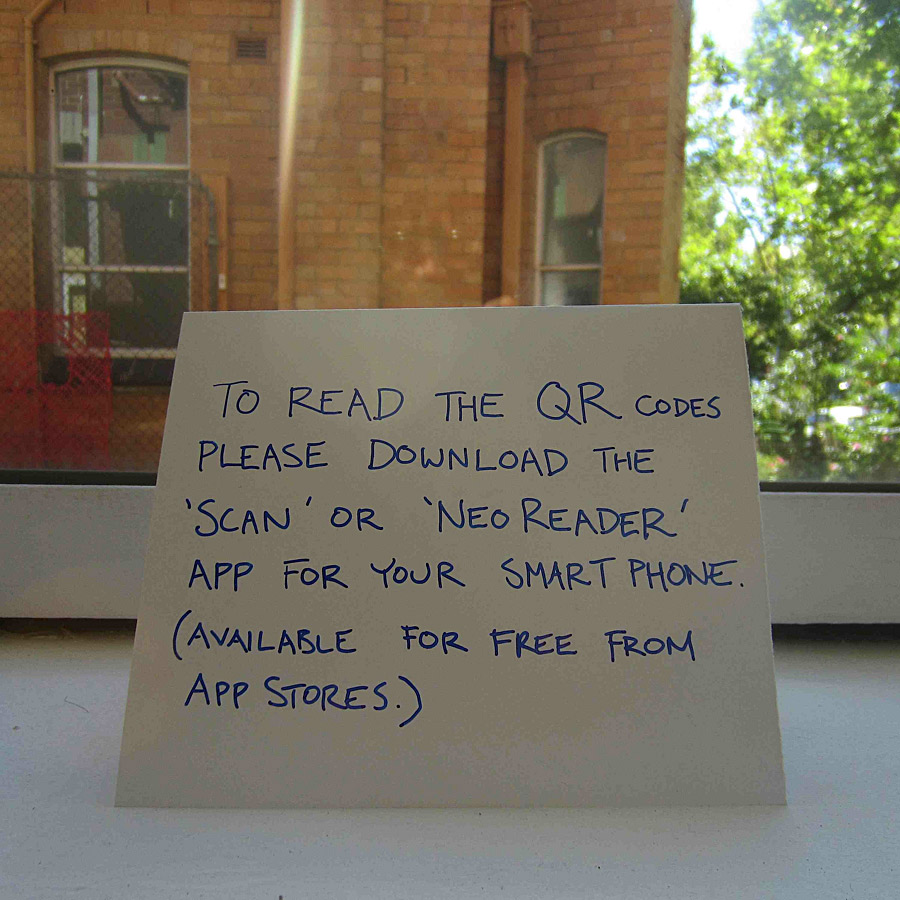 TO READ THE QR CODES
PLEASE DOWNLOAD THE
'SCAN' OR 'NEOREADER'
APP FOR YOUR SMART PHONE.
(AVAILABLE FOR FREE FROM
APP STORES.)